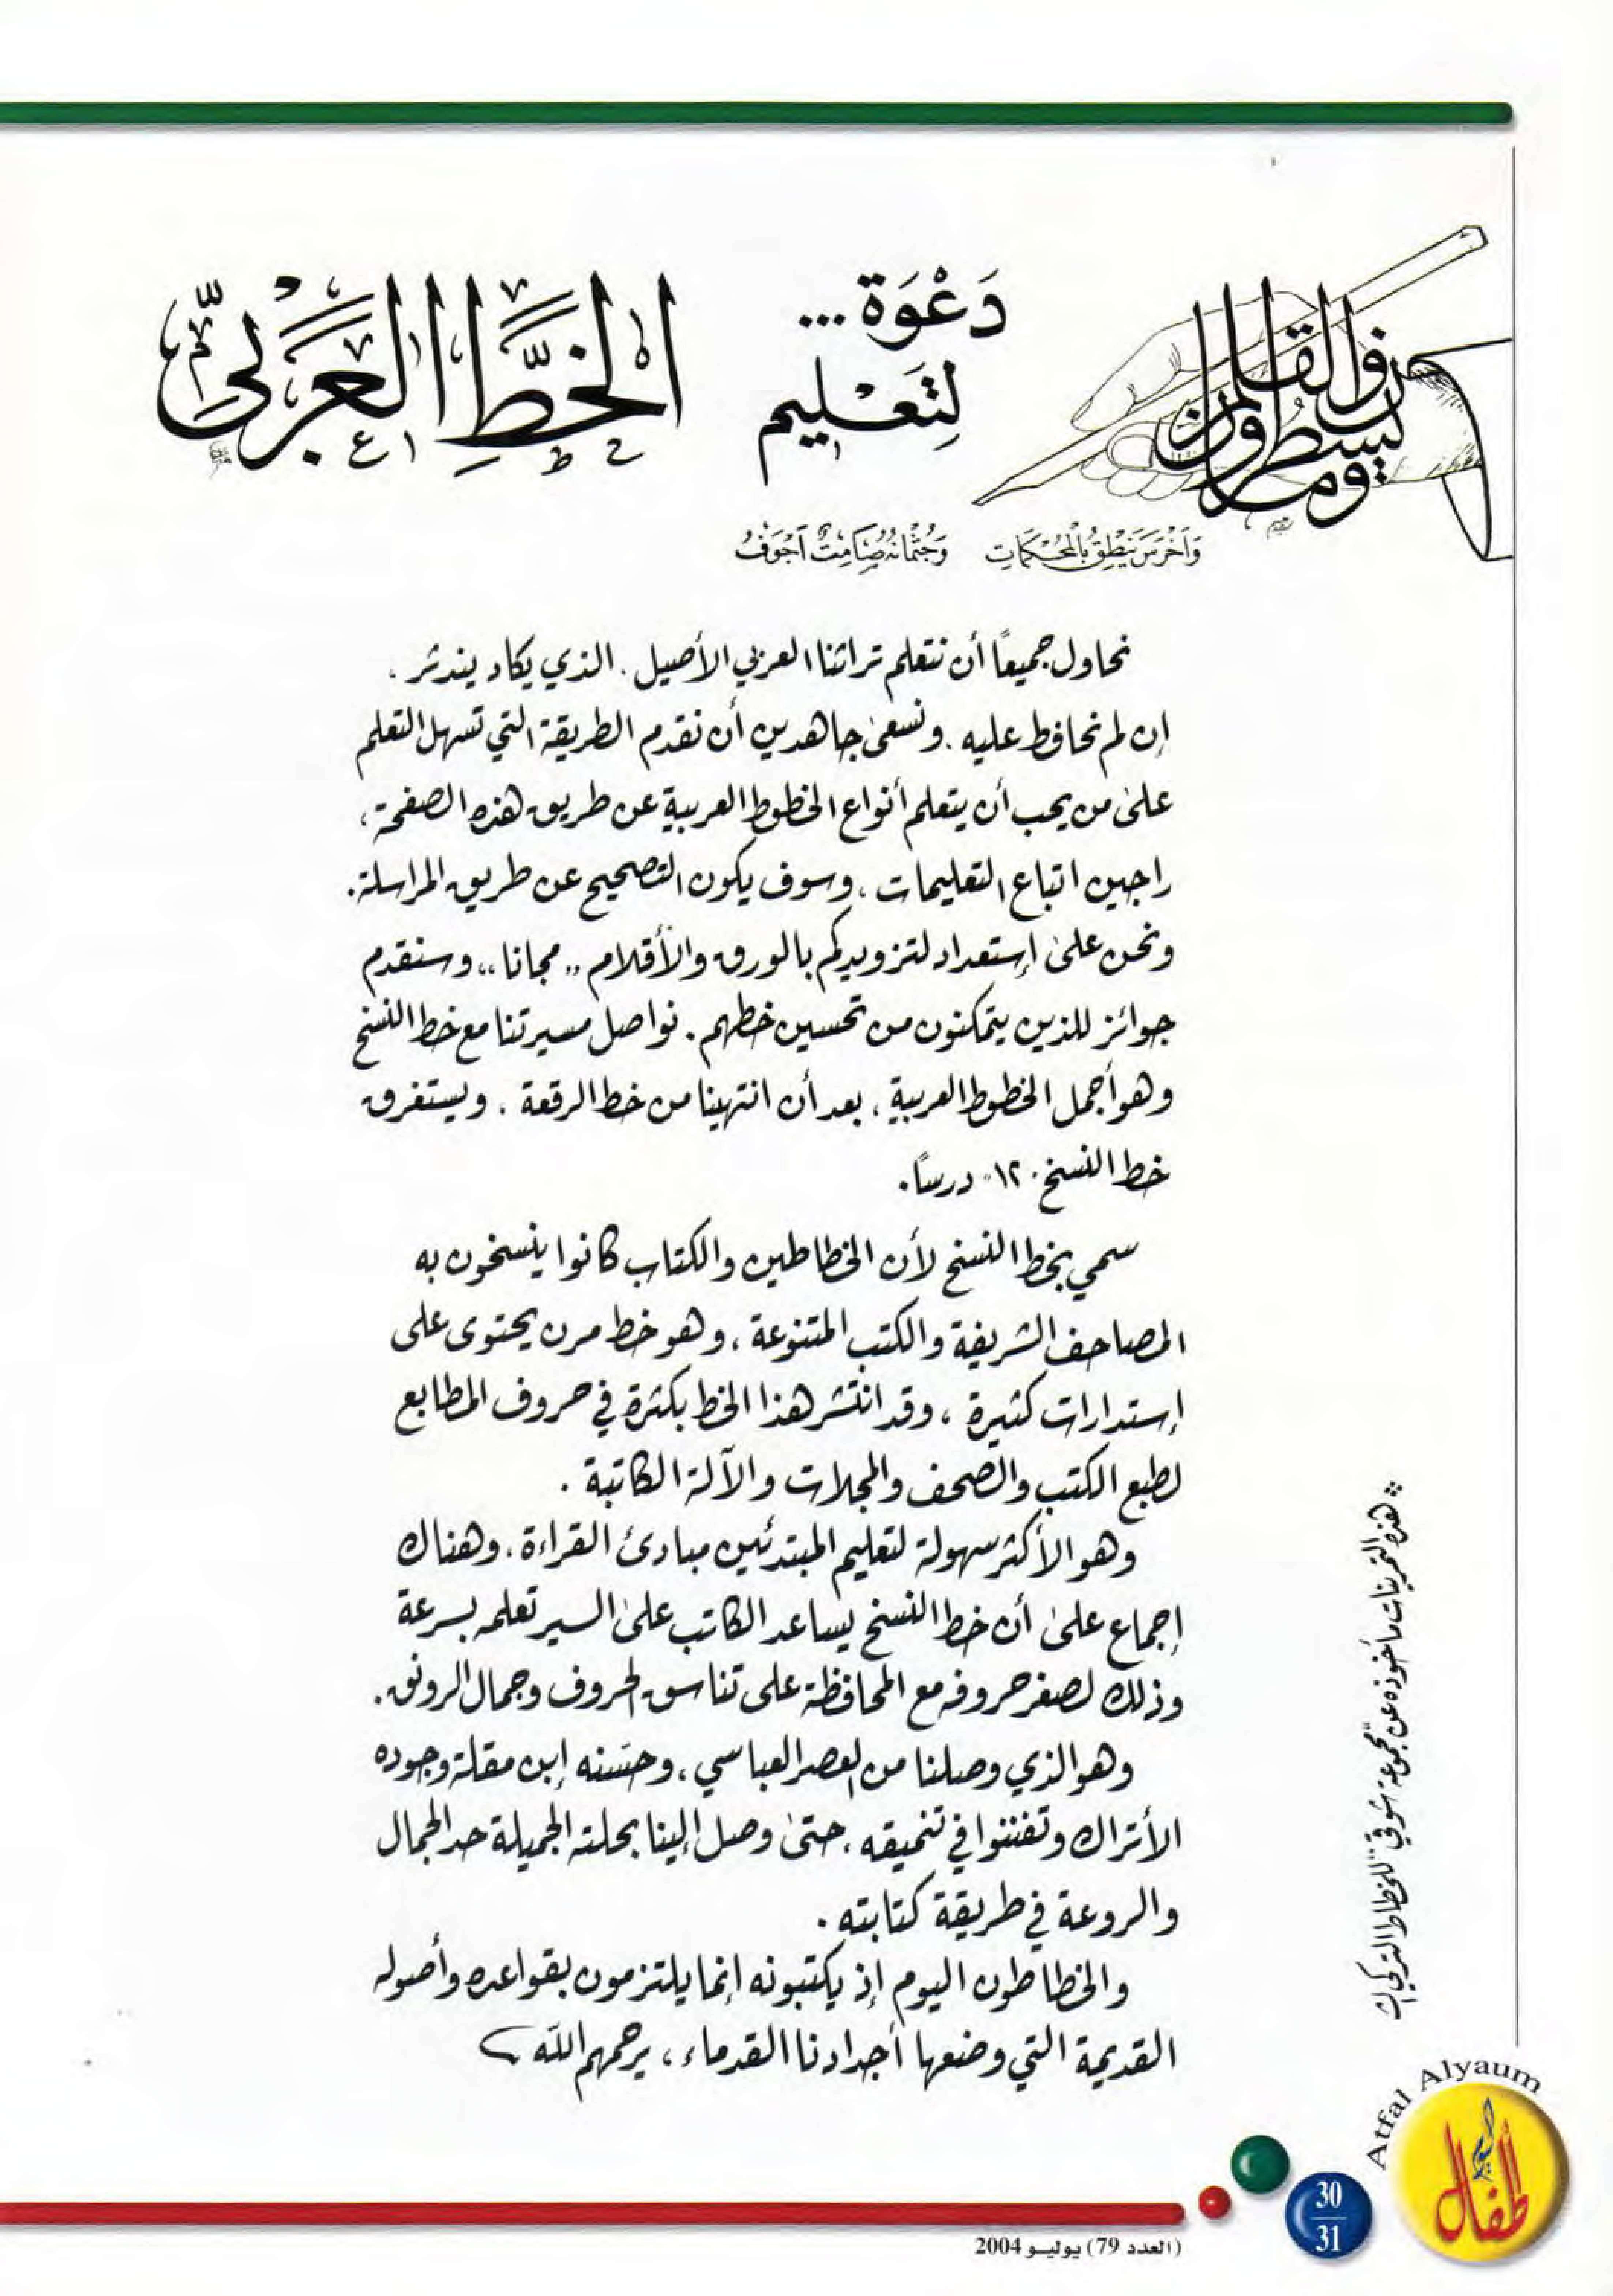 ن والقلم وما يسطرون
دَعْوَة...
لِتَعْليم
الخطِّ العَرَبيِّ
وَأَخْرَس يَنْطِقُ بِالْمُحْكَمَاتِ وَجُثْمَانُهُ صَامِتٌ أَجْوَفُ
نحاول جميعًا أن نتعلم تراثنا العربي الأصيل. الذي يكاد يندثر،
إن لم نحافظ عليه. ونسعى جاهدين أن نقدم الطريقة التي تسهل التعلم
على من يحب أن يتعلم أنواع الخطوط العربية عن طريق هذه الصفحة،
راجين اتباع التعليمات، وسوف يكون التصحيح عن طريق المراسلة.
ونحن على إستعداد لتزويدكم بالورق والأقلام „مجانا“ وسنقدم
جوائز للذين يتمكنون من تحسين خطهم. نواصل مسيرتنا مع خط النسخ
وهو أجمل الخطوط العربية، بعد أن انتهينا من خط الرقعة. ويستغرق
خط النسخ "١٢" درسًا.
سمي بخط النسخ لأن الخطاطين والكتاب كانوا ينسخون به
المصاحف الشريفة والكتب المتنوعة، وهو خط مرن يحتوى على
إستدارات كثيرة، وقد انتشر هذا الخط بكثرة في حروف المطابع
لطبع الكتب والصحف والمجلات والآلة الكاتبة.
وهو الأكثر سهولة لتعليم المبتدئين مبادئ القراءة، وهناك
إجماع على أن خط النسخ يساعد الكاتب على السير تعلمه بسرعة
وذلك لصغر حروفه مع المحافظة على تناسق الحروف وجمال الرونق.
وهو الذي وصلنا من العصر العباسي، وحسّنه إبن مقلة وجوده
الأتراك وتفننوا في تنميقه، حتى وصل إلينا بحلته الجميلة حد الجمال
والروعة في طريقة كتابته.
والخطاطون اليوم إذ يكتبونه إنما يلتزمون بقواعده وأصوله
القديمة التي وضعها أجدادنا القدماء، يرحمهم الله
* هذه التمرينات مأخوذه عن "مجموعة شوقي" للخطاط التركي
Atfal Alyaum
أطفال اليوم
30
31
(العدد 79) يوليـو 2004